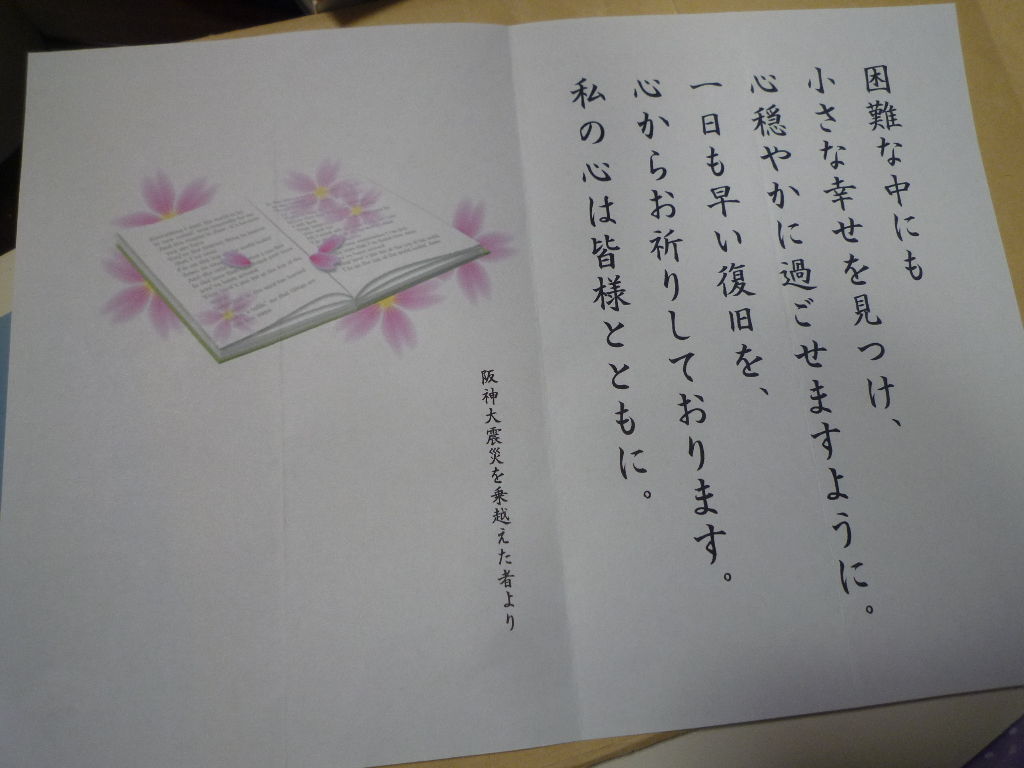 困難な中にも
小さな幸せを見つけ、
心穏やかに過ごせますように。
一日も早い復旧を、
心からお祈りしております。
私の心は皆様とともに。
阪神大震災を乗越えた者より